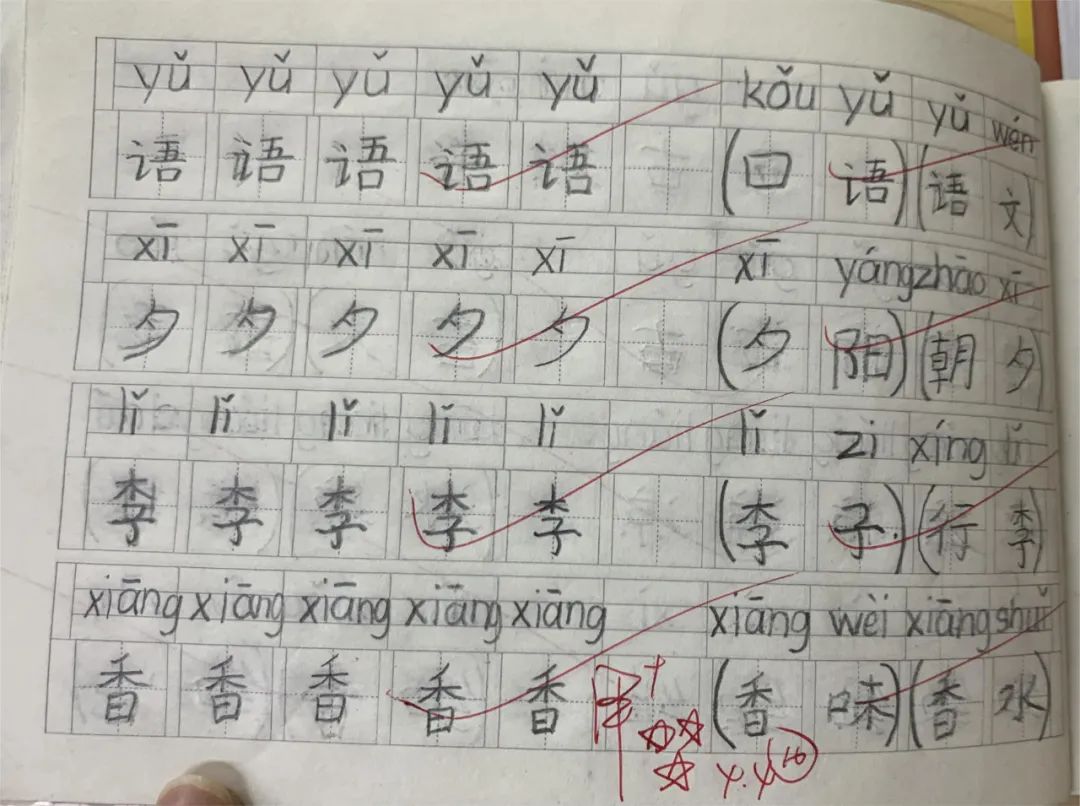 yǔ yǔ yǔ yǔ yǔ kǒu yǔ yǔ wén
语 语 语 语 语 (口 语) (语 文)
xī xī xī xī xī xī yáng zhāo xī
夕 夕 夕 夕 夕 (夕 阳) (朝 夕)
lǐ lǐ lǐ lǐ lǐ lǐ zi xíng lǐ
李 李 李 李 李 (李 子) (行 李)
xiāng xiāng xiāng xiāng xiāng xiāng wèi xiāng shuǐ
香 香 香 香 香 (香 味) (香 水)